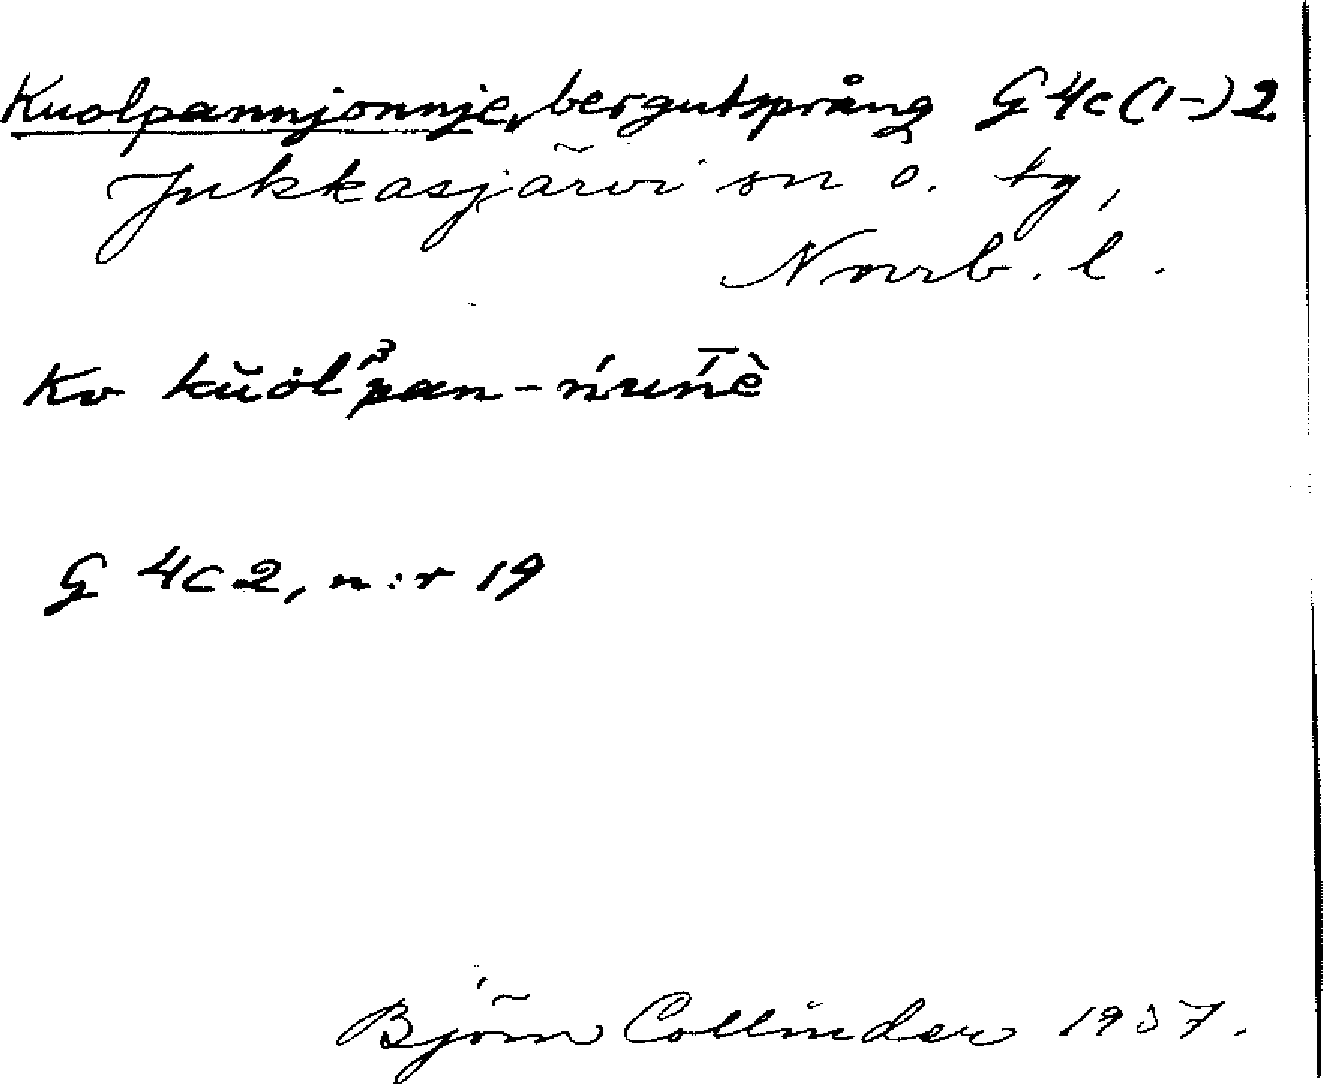 Kuolpannjonnje, bergutsprång G 4c (1-) 2
Jukkasjärvi sn o. tg,
Norrb. l.
Kv kŭȯl'pan-ńuńè
G 4c 2, n:r 19
Björn Collinder 1937.